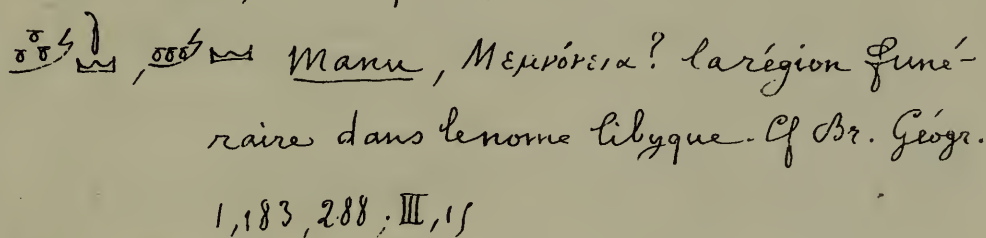 Manu, Μεμνόνεια? la région funé-
raire dans le nome libyque. Cf Br. Géogr.
1,183, 288; III,15